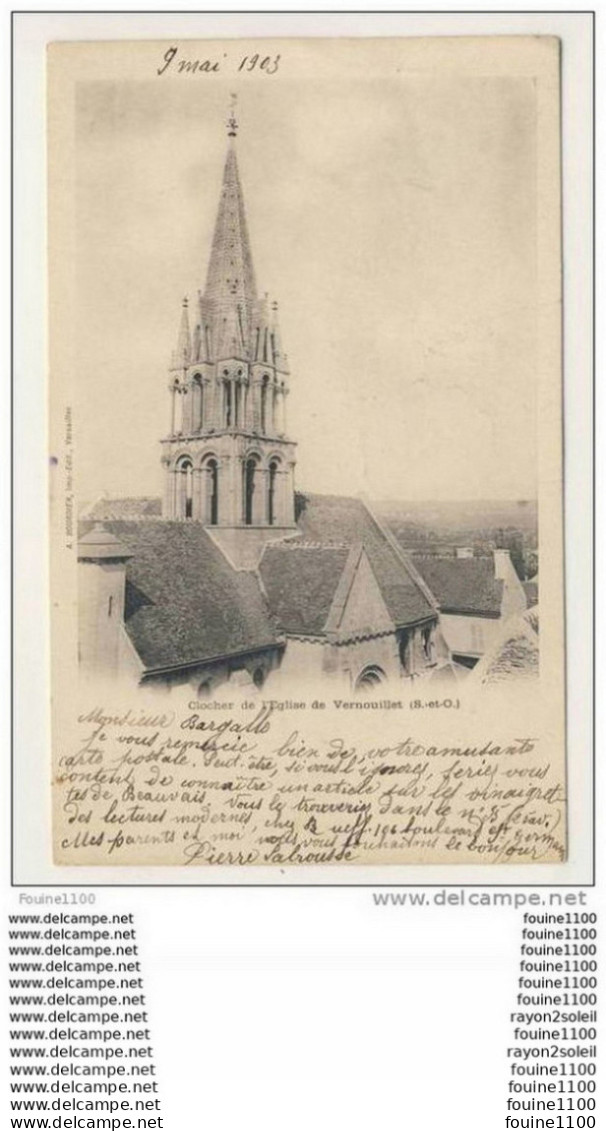 9 mai 1903
A. BOURDIER, Imp.-Edit., Versailles
Clocher de l'Eglise de Vernouillet (S.-et-O.)
Monsieur Bargallo
Je vous remercie bien de votre amusante
carte postale. Peut-être, si vous l'ignorez, seriez-vous
content de connaître un article sur les vinaigret
tes de Beauvais. Vous le trouverez dans le n° 5 (
des lectures modernes, chez 106 boulevard St Germain
Mes parents et moi nous vous souhaitons le bonjour
Pierre Labrousse
Fouine1100
www.delcampe.net
www.delcampe.net fouine1100
www.delcampe.net fouine1100
www.delcampe.net fouine1100
www.delcampe.net fouine1100
www.delcampe.net fouine1100
www.delcampe.net fouine1100
www.delcampe.net rayon2soleil
www.delcampe.net fouine1100
www.delcampe.net rayon2soleil
www.delcampe.net fouine1100
www.delcampe.net fouine1100
www.delcampe.net fouine1100
www.delcampe.net fouine1100